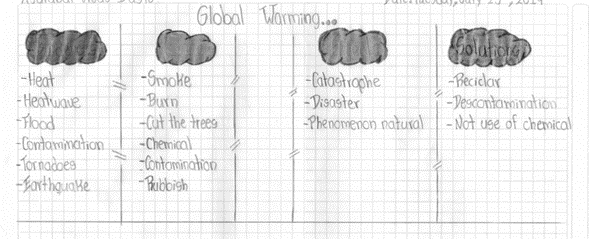 Global Warming...
Solutions
-Heat
-Heatwave
-Flood
-Contamination
-Tornadoes
-Earthquake
-Smoke
-Burn
-Cut the trees
-Chemical
-Contomination
-Rubbish
-Catastrophe
-Disaster
-Phenomenon natural
-Reciclar
-Descontamination
-Not use of chemical